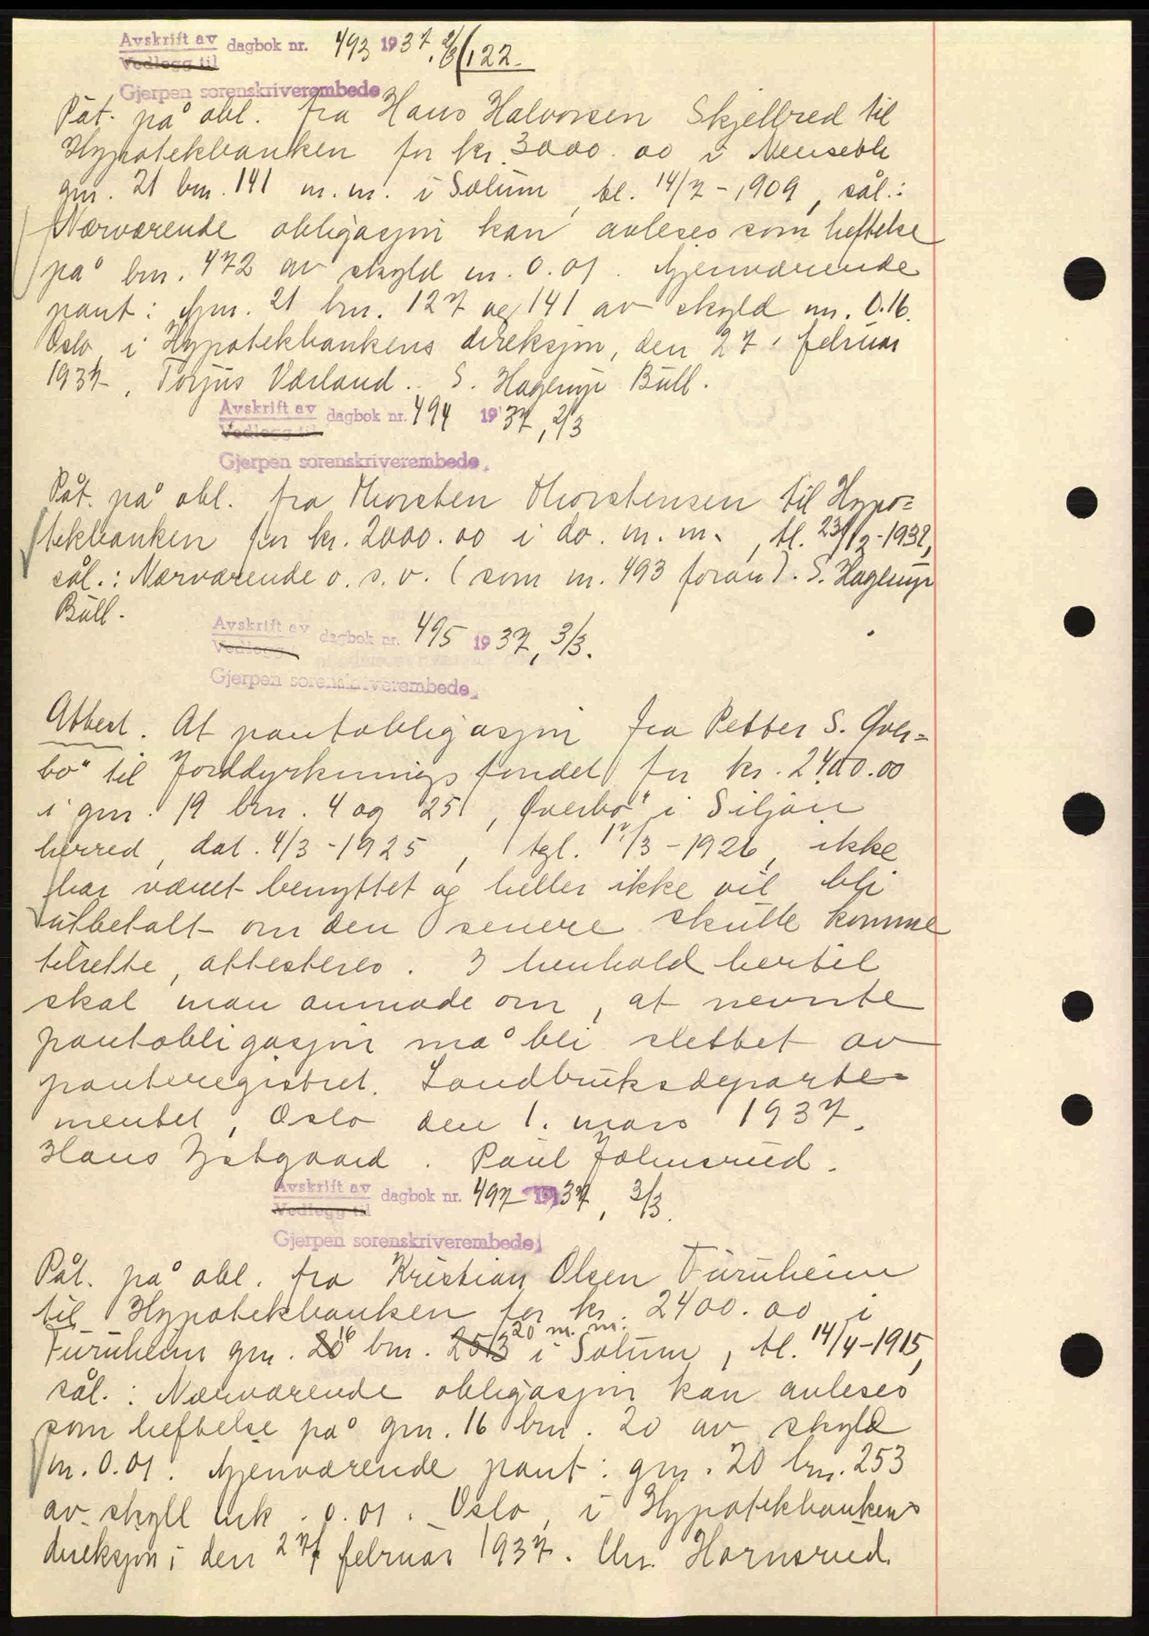 Avskrift av dagbok nr. 493 1937, 2/3 122.
Vedlegg til
Gjerpen sorenskriverembede
Påt. på obl. fra Hans Halvorsen Skjelbred til
Hypotekbanken for kr. 3000.00 i
gnr. 21 bnr. 141 m.m. i Solum, tl. 14/7-1909, sål.:
Nærværende obligasjon kan avleses som heftelse
på bnr. 472 av skyld m. 0.01. Gjenværende
pant: Gnr. 21 bnr. 127 og 141 av skyld m. 0.16.
Oslo, i Hypotekbankens direksjon, den 27. februar
1937, Torjus Værland. S. Hagerup Bull.
Avskrift av dagbok nr. 494 1937, 2/3
Vedlegg til
Gjerpen sorenskriverembede.
Påt. på obl. fra Thorsten Thorstensen til Hypo=
tekbanken for kr. 2000.00 i do. m.m., tl.
sål.: Nærværende o.s.v. (som nr. 493 foran). S. Hagerup
Bull.
Avskrift av dagbok nr. 495 1937, 3/3.
Vedlegg
Gjerpen sorenskriverembede.
Attest. At pantobligasjon fra Petter S. Øver=
bø til Jorddyrkningsfondet for kr. 2400.00
i gnr. 19 bnr. 4 og 25, "Øverbø" i Siljan
herred, dat. 4/3-1925, tgl. 17/3-1926, ikke
har været benyttet og heller ikke vil bli
utbetalt om den senere skulle komme
tilrette, attesteres. I henhold hertil
skal man anmode om, at nevnte
pantobligasjon må bli slettet av
panteregistret. Landbruksdeparte=
mentet, Oslo den 1. mars 1937.
Hans Ystgaard. Paul Johnsrud.
Avskrift av dagbok nr. 497 1937, 3/3.
Vedlegg til
Gjerpen sorenskriverembede
Påt. på obl. fra Kristian Olsen Furuheim
til Hypotekbanken for kr. 2400.00 i
Furuheim gnr. 16 bnr. 20 m.m. i Solum, tl. 14/4-1915,
sål.: Nærværende obligasjon kan avleses
som heftelse på gnr. 16 bnr. 20 av skyld
m. 0.01. Gjenværende pant: gnr. 20 bnr. 253
av skyld mk. 0.01. Oslo, i Hypotekbankens
direksjon, den 27. februar 1937. Chr. Hornsrud.